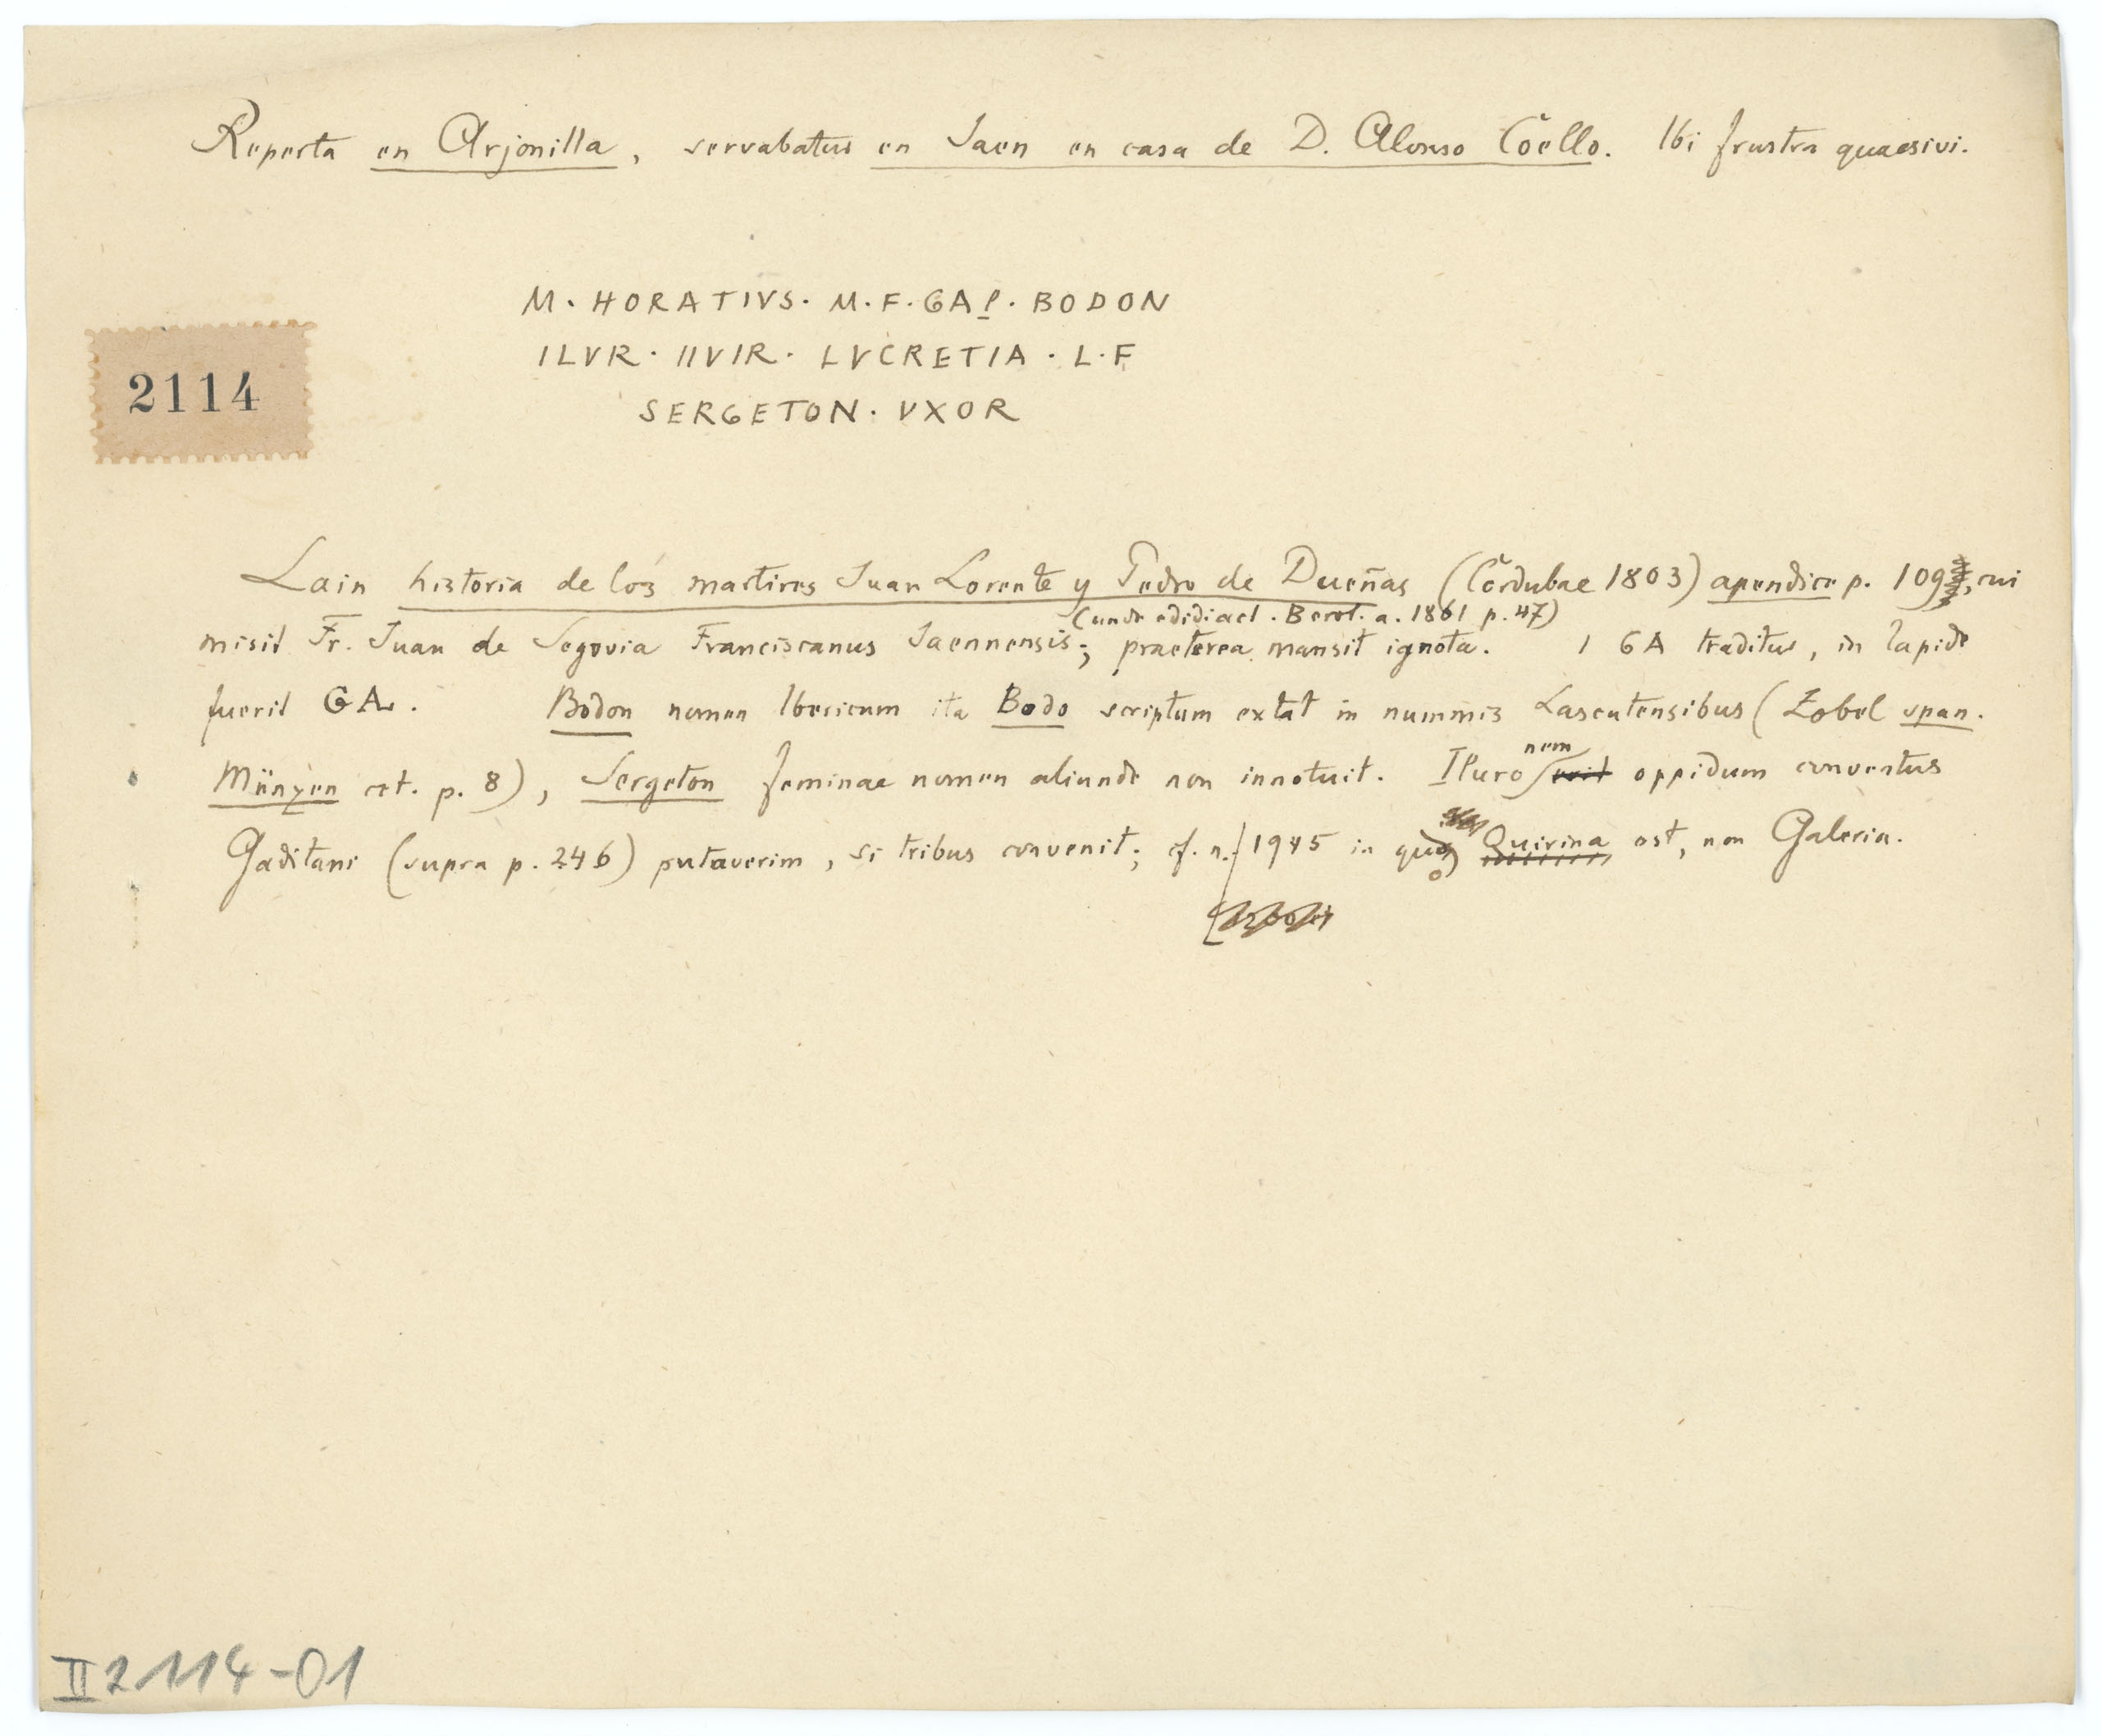 Reperta en Arjonilla, servabatur en Jaen en casa de D. Alonso Coëllo. Ibi frustra quaesivi.
M · HORATIVS · M · F · GAL · BODON
ILVR · IIVIR · LVCRETIA · L · F
SERGETON · VXOR
2114
Lain historia de los martires Juan Lorente y Pedro de Dueñas (Cordubae 1803) apendice p. 109, cui
(unde edidi act. Berol. a. 1861 p. 47)
misit Fr. Juan de Segovia Franciscanus Jaennensis; praeterea mansit ignota. 1 GA traditur, in lapide
fuerit GAL. Bodon nomen Ibericum ita Bodo scriptum extat in nummis Lascutensibus (Zobel span.
Münzen cet. p. 8), Sergeton feminae nomen aliunde non innotuit. Iluronem oppidum conventus
Gaditani (supra p. 246) putaverim, si tribus convenit; cf. n. 1945 in quo Quirina est, non Galeria.
II 2114-01